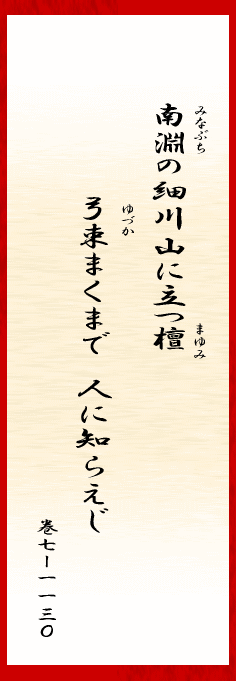 みなぶち　まゆみ
南淵の細川山に立つ檀
ゆづか
弓束まくまで　人に知らえじ
巻七ー一一三〇